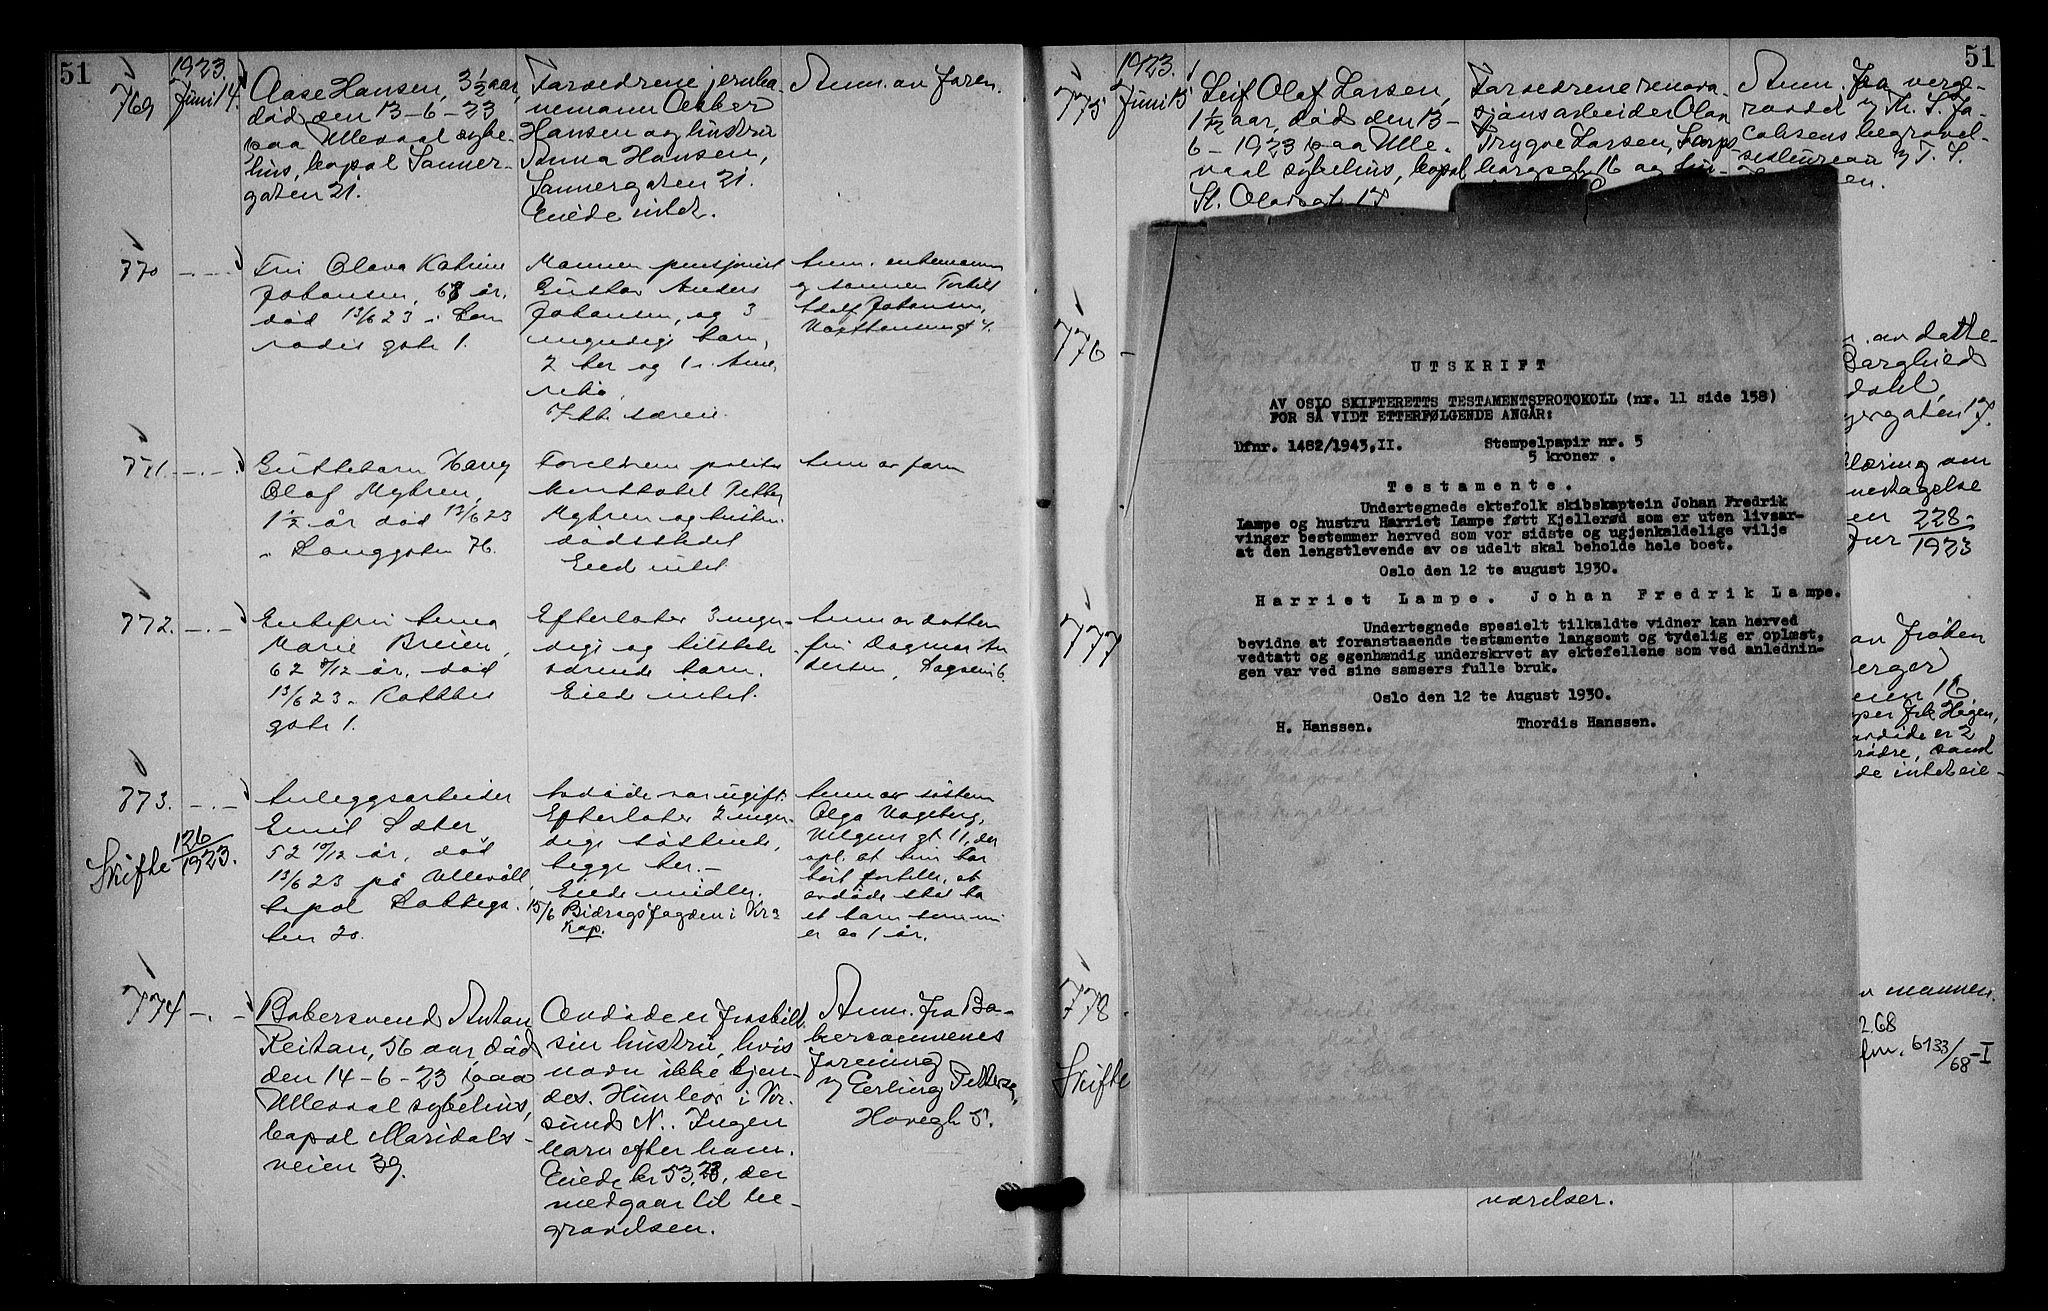 51
1923.
769
Juni 14.
Aase Hansen, 3½ aar,
død den 13-6-23
paa Ullevaal syke-
hus, bopæl Sanner-
gaten 21.
Forældrene jernba-
nemann Osber
Hansen og hustru
Anna Hansen,
Sannergaten 21.
Eiede intet.
Anm. av faren.
770
Fru Olava Katrine
Johansen, 68 år,
død 13/6 23 i Kon
radis gate 1.
Mannen pensjonist
Gustav Anders
Johansen, og 3
myndige barn,
2 her og 1 i Ame
rika.
Intet særeie.
Anm. enkemann
og sønnen Torbil
Adolf Johansen,
771.
Guttebarn Harry
Olaf Myhren,
1½ år død 13/6 23
i Langgaten 76.
Foreldrene politi-
konstabel Petter
Myhren og hustru
dødstedet
Eied intet
Anm av faren
772.
Enkefru Anna
Marie Breien,
62 9/12 år, død
13/6 23 i
gate 1.
Efterlater 3 myn-
dige og tilstede
værende barn.
Eiede intet.
Anm av datten
fru Dagmar An
dersen, Dagsvei 6.
773.
Skifte 126/1923.
Anleggsarbeider
Emil Sæter,
52 10/12 år, død
13/6 23 på Ullevål,
bopæl Kobbega-
ten 20.
Avdøde var ugift.
Efterlater 2 myn-
dige søstrende,
begge her.-
Eiede midler.
15/6 Bidragsfogden i Kra
Kap.
Anm av søsteren
Olga Vageberg,
gt 11, der
opl. at hun har
hørt fortelle, at
avdøde skal ha
et barn som nu
er ca 1 år.
774
Bakersvend Anton
Reitan, 56 aar død
den 14-6-23 paa
Ullevaal sykehus,
bopæl Maridals-
veien 39.
Avdøde er fraskilt
sin hustru, hvis
navn ikke kjen-
des. Hun bor i Kr.
sund N. Ingen
barn efter ham.
Eiede kr 53,28, der
medgaar til be-
gravelsen.
Anm. fra Ba-
kersvennenes
forening
v/ Erling Petterse,
Hovegt 5.
51
1923.
775
Juni 15
Leif Olaf Larsen,
1 1/12 aar, død den 13-
6-1923 paa Ulle-
vaal sykehus, bopæl
St. Olavsgt. 17
Forældrene renova-
sjonsarbeider Olav
Trygve Larsen, Sarps-
borggt. 16 og hus-
Anm. fra verge-
raadet v/ Th. S. Ja-
cobsens begravel-
sesbureau v/ T. S.
776
777
778
Skifte
UTSKRIFT
AV OSLO SKIFTERETTS TESTAMENTSPROTOKOLL (nr. 11 side 158)
FOR SÅ VIDT ETTERFØLGENDE ANGÅR:
Dfnr. 1482/1943,II.
Stempelpapir nr. 5
5 kroner .
Testamente.
Undertegnede ektefolk skibskaptein Johan Fredrik
Lampe og hustru Harriet Lampe født Kjellerød som er uten livsar-
vinger bestemmer herved som vor sidste og ugjenkaldelige vilje
at den lengstlevende av os udelt skal beholde hele boet.
Oslo den 12 te august 1930.
Harriet Lampe. Johan Fredrik Lampe.
Undertegnede spesielt tilkaldte vidner kan herved
bevidne at foranstaaende testamente langsomt og tydelig er oplæst,
vedtatt og egenhændig underskrvet av ektefellene som ved anlednin-
gen var ved sine samsers fulle bruk.
Oslo den 12 te August 1930.
H. Hanssen.
Thordis Hanssen.
. av datte-
Borghild
dahl
gergaten 17.
læring om
nektagelse
en 228
Jur 1923
an frøken
berger
eien 16
per frk Hagen,
avdøde er 2
rødre, samt
de intet eie-
v mannen.
2.68
fnr. 6133/68-I
værelser.